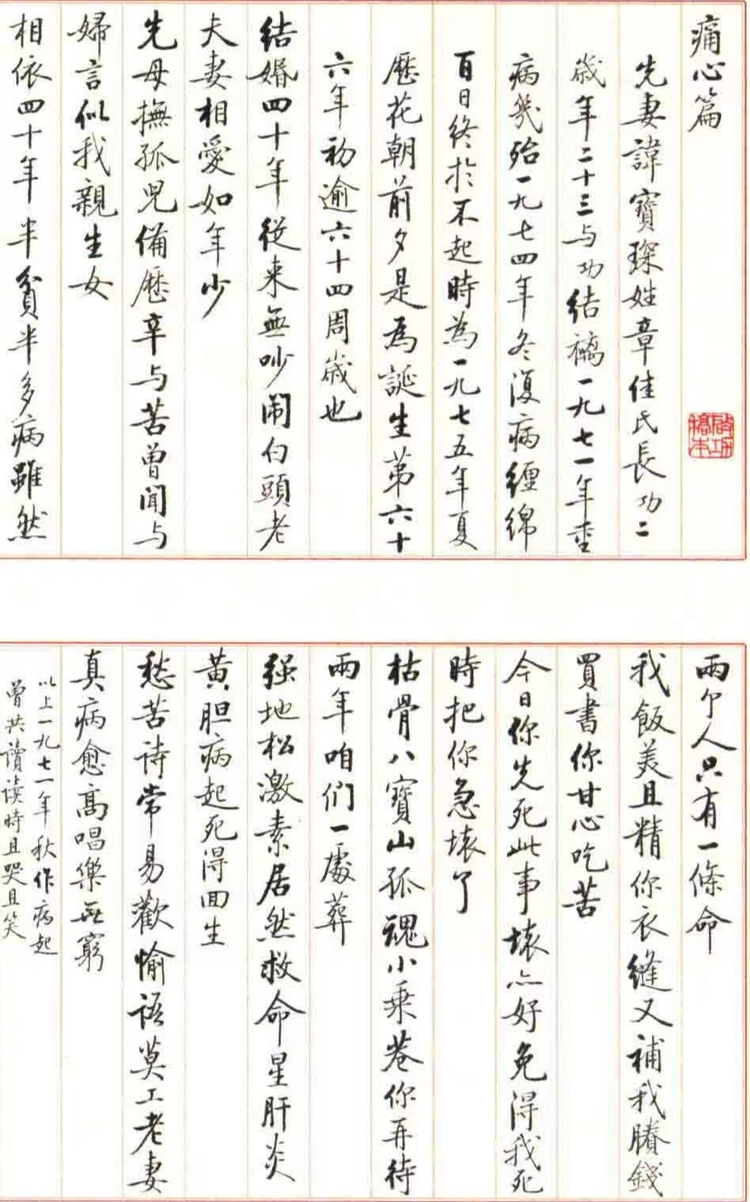 痛心篇
先妻諱寶琛姓章佳氏長功二
歲年二十三与功結褵一九七一年重
病幾殆一九七四年冬復病纏綿
百日終於不起時為一九七五年夏
曆花朝前夕是為誕生第六十
六年初逾六十四周歲也
結婚四十年從来無吵闹白頭老
夫妻相愛如年少
先母撫孤兒備歷辛与苦曾聞与
婦言似我親生女
相依四十年半貧半多病雖然
啟功
橋本
兩个人只有一條命
我飯美且精你衣縫又補我賸錢
買書你甘心吃苦
今日你先死此事壞亦好免得我死
時把你急壞了
枯骨八寶山孤魂小乘巷你再待
兩年咱们一處葬
强地松激素居然救命星肝炎
黄胆病起死得回生
愁苦诗常易歡愉语莫工老妻
真病愈高唱樂無窮
以上一九七一年秋作病起
曾共讀读時且哭且笑